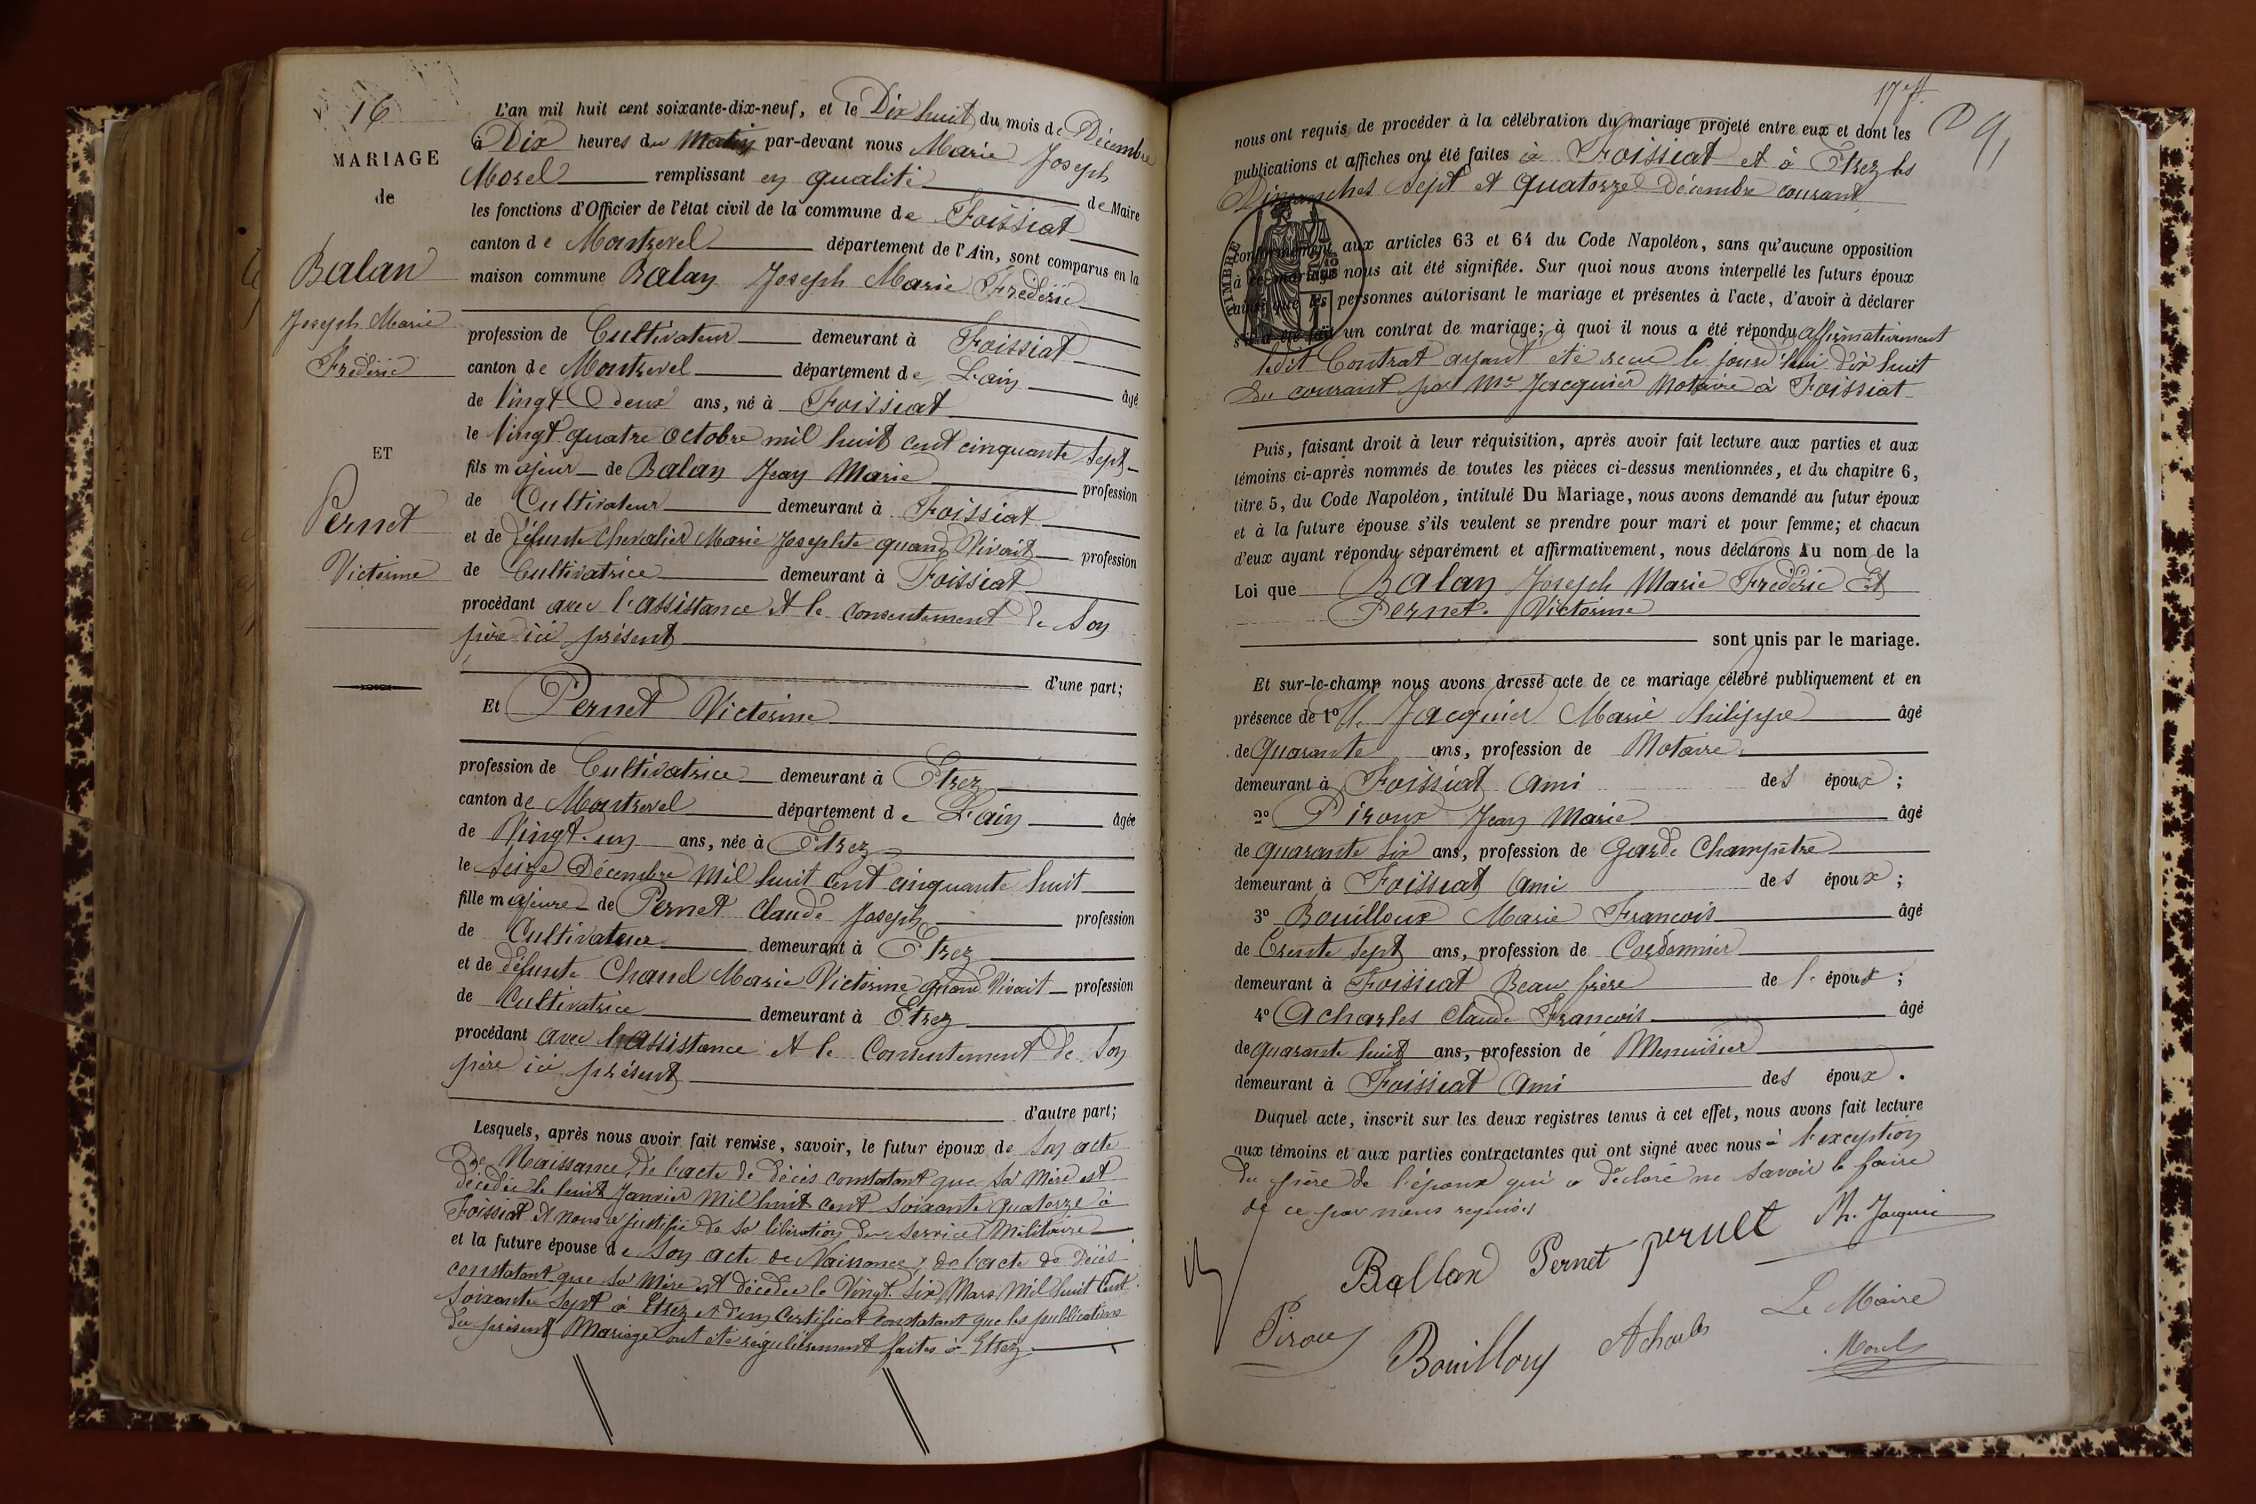 16
MARIAGE
de
Balan
Joseph Marie
Frédéric
ET
Pernet
Victorine
L'an mil huit cent soixante-dix-neuf, et le Dix huit du mois de Décembre
à Dix heures du Matin par-devant nous Marie Joseph
Morel remplissant en qualité de Maire
les fonctions d'Officier de l'état civil de la commune de Foissiat
canton de Montrevel département de l'Ain, sont comparus en la
maison commune Balan Joseph Marie Frédéric
profession de Cultivateur demeurant à Foissiat
canton de Montrevel département de L'ain âgé
de Vingt deux ans, né à Foissiat
le Vingt quatre octobre mil huit cent cinquante sept
fils majeur de Balan Jean Marie profession
de Cultivateur demeurant à Foissiat
et de défunte Chevalier Marie Josephte quand Vivait profession
de Cultivatrice demeurant à Foissiat
procédant avec l'assistance et le consentement de son
père ici présent
d'une part;
Et Pernet Victorine
profession de Cultivatrice demeurant à Etrez
canton de Montrevel département de L'ain âgée
de Vingt-un ans, née à Etrez
le seize Décembre Mil huit cent cinquante huit
fille majeure de Pernet Claude Joseph profession
de Cultivateur demeurant à Etrez
et de défunte Chanel Marie Victorine quand Vivait profession
de Cultivatrice demeurant à Etrez
procédant avec l'assistance et le Consentement de son
père ici présent
d'autre part;
Lesquels, après nous avoir fait remise, savoir, le futur époux de son acte
de Naissance, de l'acte de décès constatant que sa Mère est
décédée le huit Janvier Mil huit cent soixante quatorze à
Foissiat et nous a justifié de sa libération du service Militaire
et la future épouse de son acte de Naissance, de l'acte de Décès
constatant que sa Mère est décédée le Vingt Six Mars Mil huit Cent
Soixante sept à Etrez et d'un Certificat constatant que les publications
du présent Mariage ont été régulièrement faites à Etrez
17
nous ont requis de procéder à la célébration du mariage projeté entre eux et dont les
publications et affiches ont été faites à Foissiat et à Etrez les
Dimanches sept et quatorze Décembre courant
TIMBRE
conformément aux articles 63 et 64 du Code Napoléon, sans qu'aucune opposition
à ce mariage nous ait été signifiée. Sur quoi nous avons interpellé les futurs époux
ainsi que les personnes autorisant le mariage et présentes à l'acte, d'avoir à déclarer
s'il a été fait un contrat de mariage; à quoi il nous a été répondu affirmativement
ledit Contrat ayant été reçu le jourd'hui dix huit
du courant par Me Jacquier Notaire à Foissiat
Puis, faisant droit à leur réquisition, après avoir fait lecture aux parties et aux
témoins ci-après nommés de toutes les pièces ci-dessus mentionnées, et du chapitre 6,
titre 5, du Code Napoléon, intitulé Du Mariage, nous avons demandé au futur époux
et à la future épouse s'ils veulent se prendre pour mari et pour femme; et chacun
d'eux ayant répondu séparément et affirmativement, nous déclarons Au nom de la
Loi que Balan Joseph Marie Frédéric Et
Pernet Victorine
sont unis par le mariage.
Et sur-le-champ nous avons dressé acte de ce mariage célébré publiquement et en
présence de 1° M. Jacquier Marie Philippe âgé
de quarante ans, profession de Notaire
demeurant à Foissiat Ami des époux;
2° Piroux Jean Marie âgé
de quarante six ans, profession de Garde Champêtre
demeurant à Foissiat Ami des époux;
3° Bouilloux Marie François âgé
de Trente sept ans, profession de Cordonnier
demeurant à Foissiat Beau frère de l'époux;
4° Acharles Claude François âgé
de quarante huit ans, profession de Menuisier
demeurant à Foissiat Ami des époux.
Duquel acte, inscrit sur les deux registres tenus à cet effet, nous avons fait lecture
aux témoins et aux parties contractantes qui ont signé avec nous à l'exception
du père de l'époux qui a déclaré ne savoir le faire
de ce par nous requis
Ballan Pernet pernet Ph. Jacquier
Piroux Bouilloux Acharles Le Maire
Morel